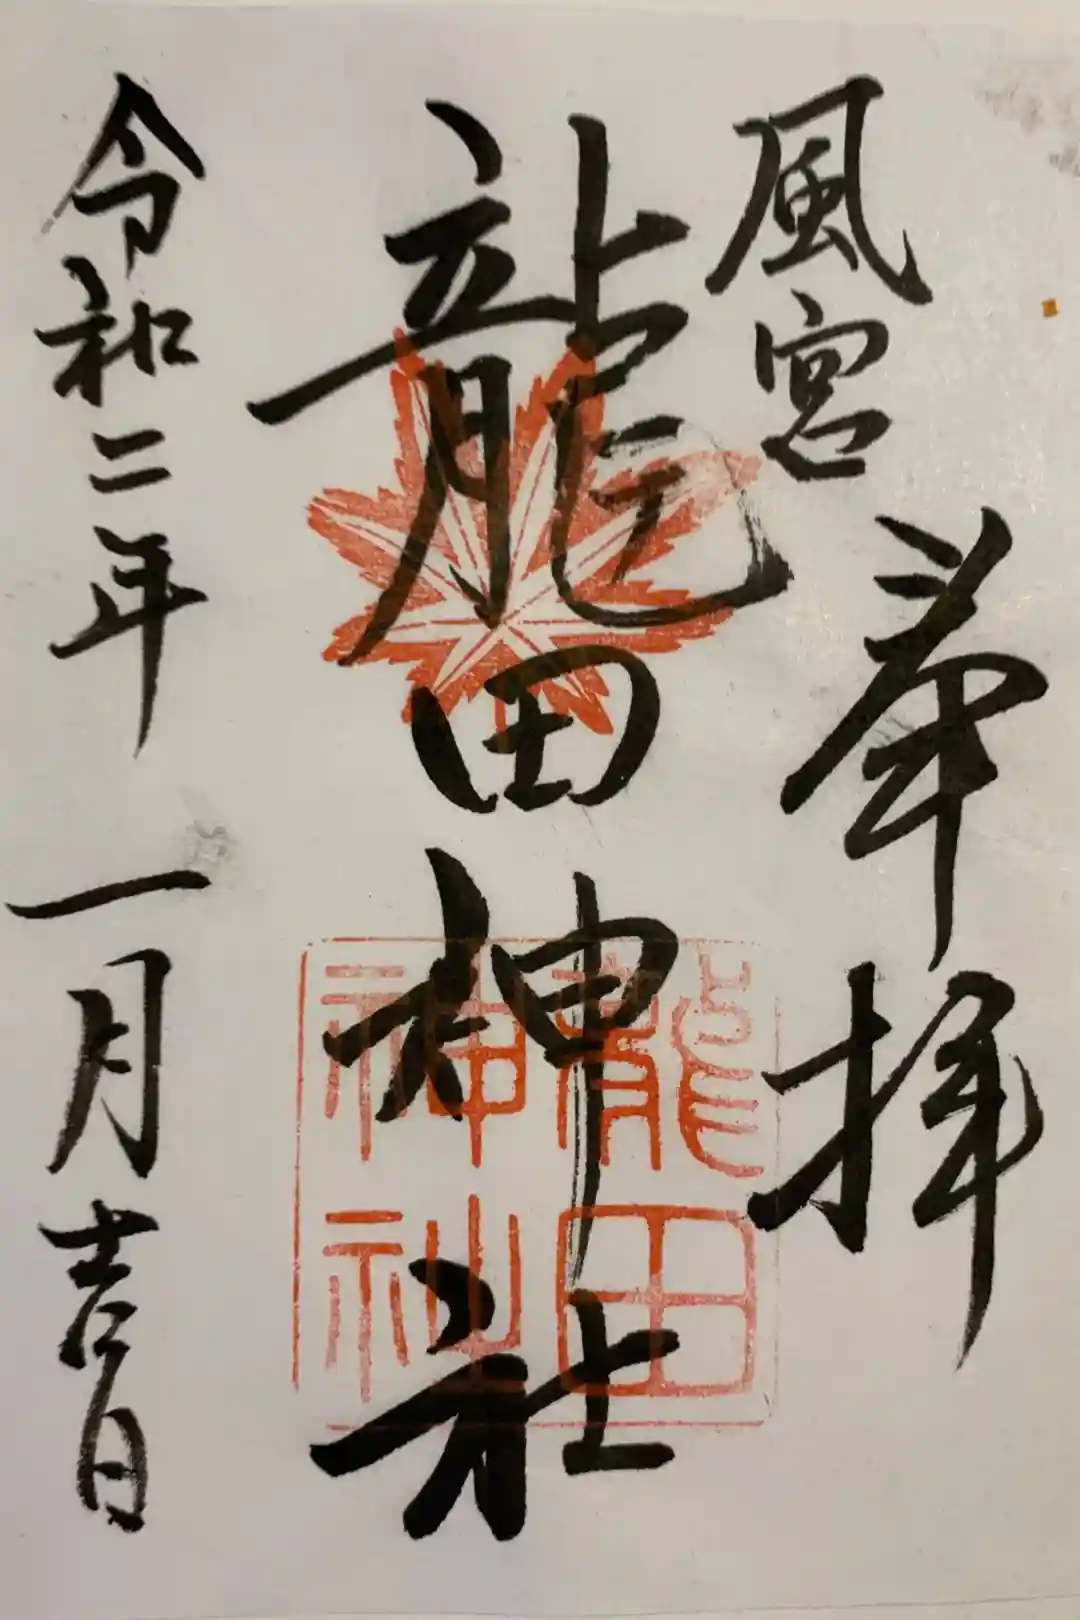 風宮
奉拝
龍田神社
龍田
神社
令和二年一月吉日